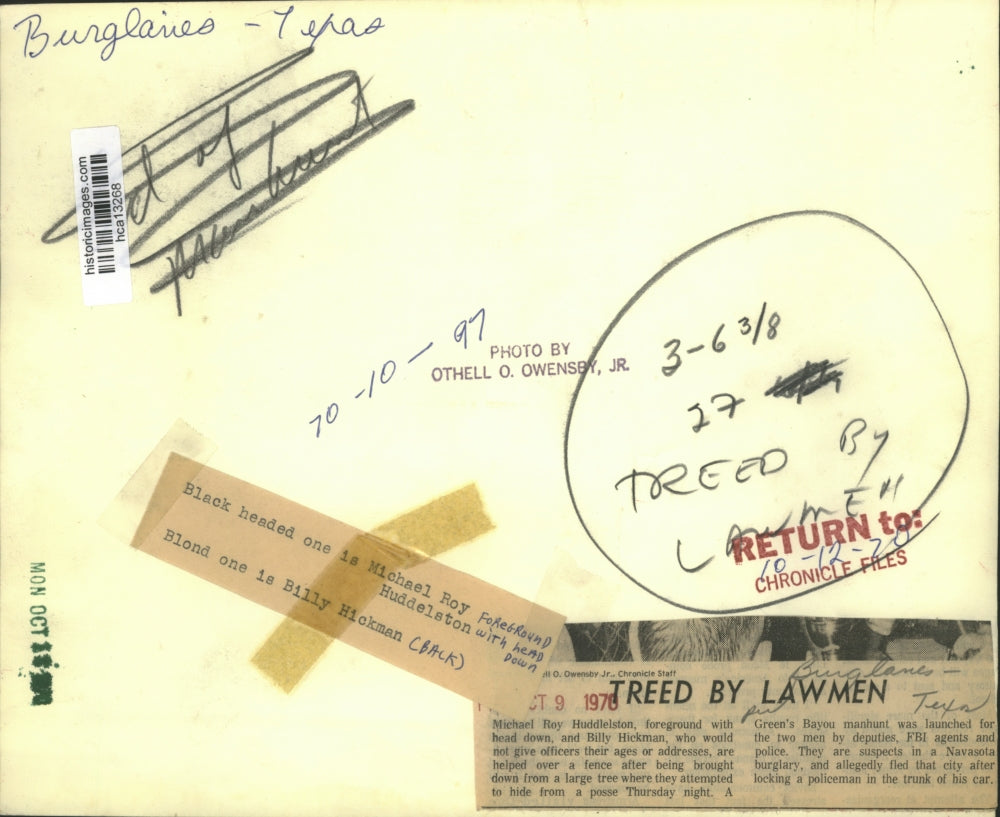 Burglaries - Texas
historicimages.com
hca13268
d of
manhunt
10-10-97
PHOTO BY
OTHELL O. OWENSBY, JR.
3-6 3/8
27
TREED By
LAWMEN
RETURN to:
10-12-70
CHRONICLE FILES
Black headed one is Michael Roy
Huddelston FOREGROUND
with head
down
Blond one is Billy Hickman (BACK)
MON OCT
ll O. Owensby Jr., Chronicle Staff
CT 9 1970
TREED BY LAWMEN
Burglaries -
Texas
Michael Roy Huddlelston, foreground with
head down, and Billy Hickman, who would
not give officers their ages or addresses, are
helped over a fence after being brought
down from a large tree where they attempted
to hide from a posse Thursday night. A
Green's Bayou manhunt was launched for
the two men by deputies, FBI agents and
police. They are suspects in a Navasota
burglary, and allegedly fled that city after
locking a policeman in the trunk of his car.